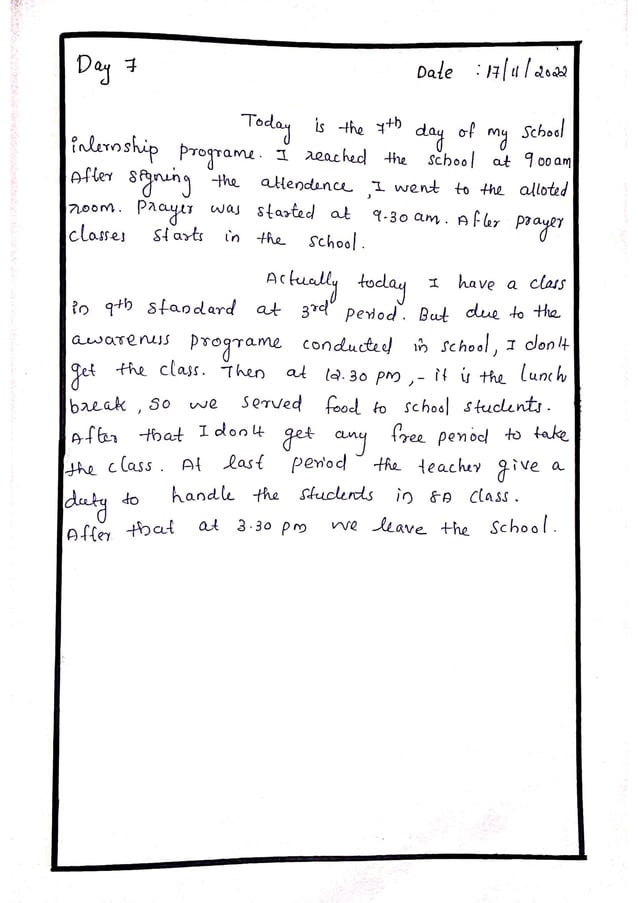 Day 7 Date : 17/11/2022
Today is the 7th day of my School
internship programe. I reached the school at 9 00 am
After signing the attendence, I went to the alloted
room. Prayer was started at 9.30 am. After prayer
classes starts in the school.
Actually today I have a class
in 9th standard at 3rd period. But due to the
awareness programe conducted in school, I don't
get the class. Then at 12.30 pm, - it is the lunch
break, so we served food to school students.
After that I don't get any free period to take
the class. At last period the teacher give a
duty to handle the students in 8A class.
After that at 3.30 pm we leave the school.